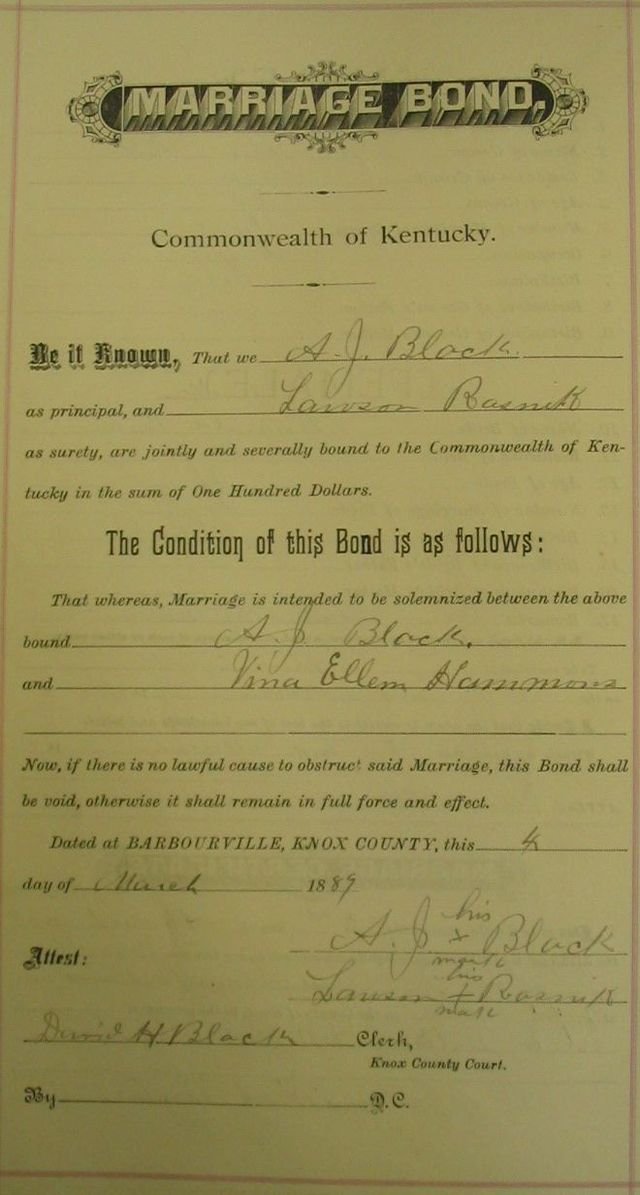 MARRIAGE BOND.
Commonwealth of Kentucky.
Be it Known, That we A. J. Black.
as principal, and Lawson Rasnik
as surety, are jointly and severally bound to the Commonwealth of Ken-
tucky in the sum of One Hundred Dollars.
The Condition of this Bond is as follows:
That whereas, Marriage is intended to be solemnized between the above
bound A. J Black.
and Vina Ellem Hammons
Now, if there is no lawful cause to obstruct said Marriage, this Bond shall
be void, otherwise it shall remain in full force and effect.
Dated at BARBOURVILLE, KNOX COUNTY, this 4
day of March 1889
his
Attest: A. J x Black
mark
his
Lawson + Rasnik
mark
David H Black Clerk,
Knox County Court.
By D. C.